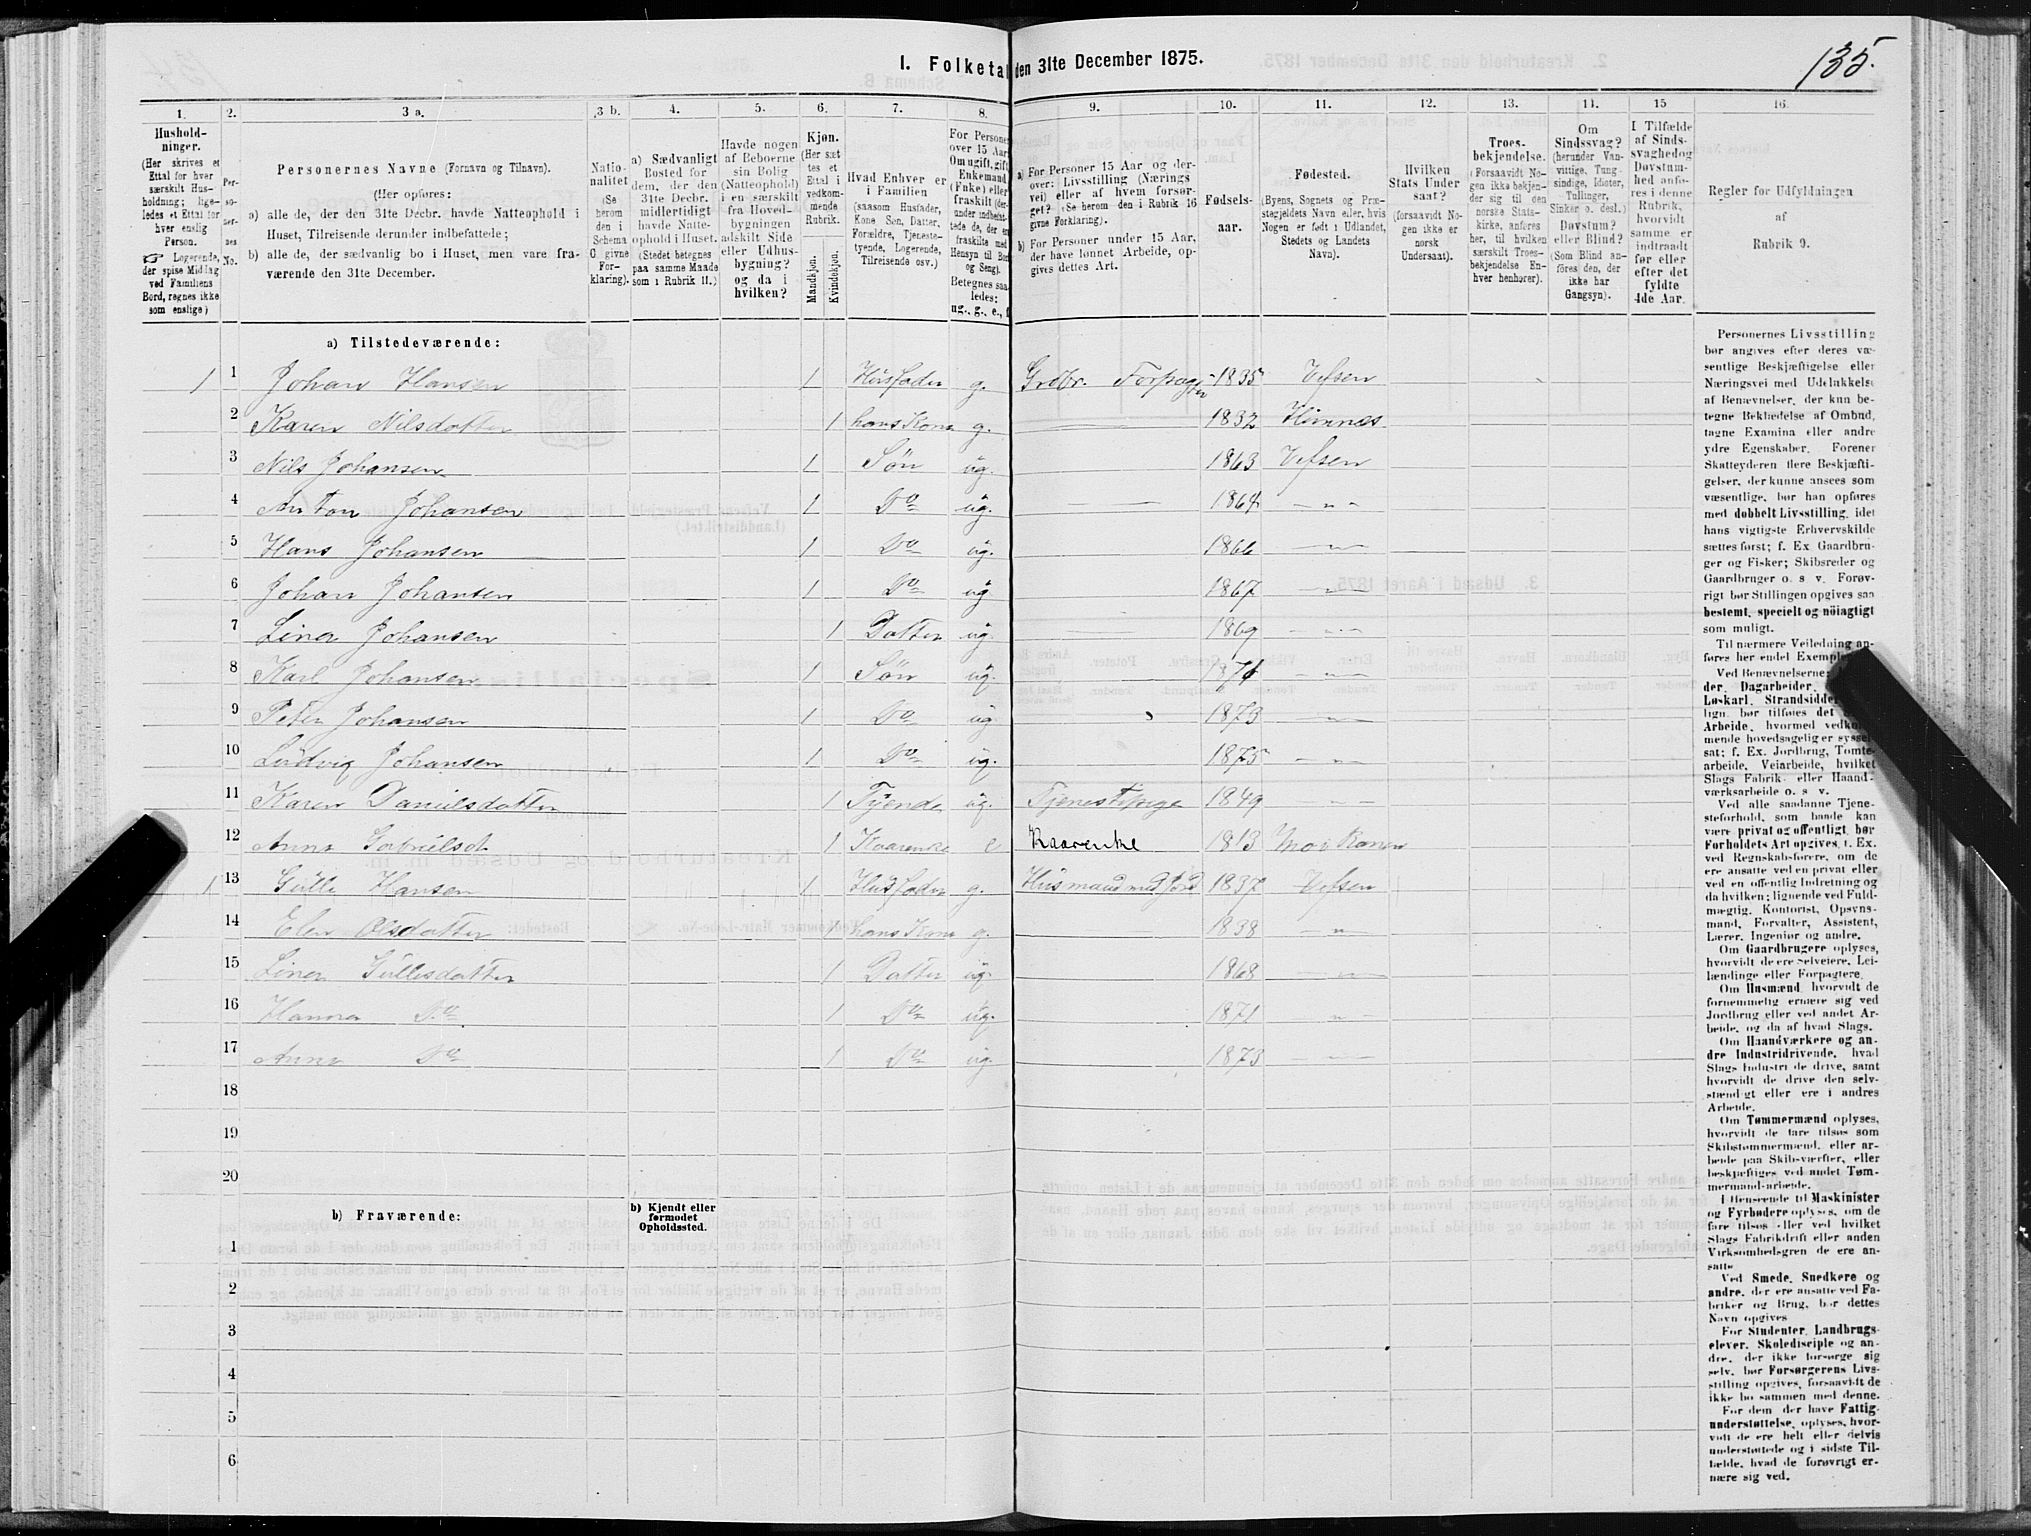 135.
I. Folketal den 31te December 1875.
1. 2. 3 a. 3 b. 4. 5. 6. 7. 8. 9. 10. 11. 12. 13. 14. 15 16.
Hushold-
ninger.
(Her skrives et
Ettal for hver
særskilt Hus-
holdning; lige-
ledes et Ettal for
hver enslig
Person.
☞ Logerende,
der spise Middag
ved Familiens
Bord, regnes ikke
som enslige)
Per-
so-
ner-
nes
No.
Personernes Navne (Fornavn og Tilnavn).
(Her opføres:
a) alle de, der den 31te Decbr. havde Natteophold i
Huset, Tilreisende derunder indbefattede;
b) alle de, der sædvanlig bo i Huset, men vare fra-
værende den 31te December.
Natio-
nalitet
(Se
herom
den i
Schema
C givne
For-
klaring).
a) Sædvanligt
Bosted for
dem, der den
31te Decbr.
midlertidigt
havde Natte-
ophold i Huset.
(Stedet betegnes
paa samme Maade
som i Rubrik 11.)
Havde nogen
af Beboerne
sin Bolig
(Natteophold)
i en særskilt
fra Hoved-
bygningen
adskilt Side
eller Udhus-
bygning?
og da i
hvilken?
Kjøn.
(Her sæt
tes et
Ettal i
vedkom-
mende
Rubrik.
Mandkjøn.
Kvindekjøn.
Hvad Enhver er
i Familien
(saasom Husfader,
Kone Søn, Datter,
Forældre, Tjeneste-
tyende, Logerende,
Tilreisende osv.)
For Persone
over 15 Aar
Om ugift, gift
Enkemand
(Enke) eller
fraskilt
Betegnes saa
ledes:
ug., g., e., f
a) For Personer 15 Aar og der-
over: Livsstilling (Nærings
vei) eller af hvem forsør-
get? (Se herom den i Rubrik 16
givne Forklaring).
b) For Personer under 15 Aar,
der have lønnet Arbeide, op-
gives dettes Art.
Fødsels-
aar.
Fødested.
(Byens, Sognets og Præ-
stegjeldets Navn eller, hvis
Nogen er født i Udlandet,
Stedets og Landets
Navn).
Hvilken
Stats Under
saat?
(forsaavidt No-
gen ikke er
norsk
Undersaat).
Troes-
bekjendelse.
(Forsaavidt No-
gen ikke bekjen-
der sig til den
norske Stats-
kirke, anføres
her, til hvilken
særskilt Troes-
bekjendelse En-
hver henhører).
Om
Sindssvag?
(herunder Van-
vittige, Tung-
sindige, Idioter,
Tullinger,
Sinker o. desl.)
Døvstum?
eller Blind?
(Som Blind an-
føres den, der
ikke har
Gangsyn).
I Tilfælde
af Sinds-
svaghed og
Døvstum-
hed anfø-
res i denne
Rubrik,
hvorvidt
samme er
indtraadt
før eller
efter det
fyldte
4de Aar.
Regler for Udfyldningen
af
Rubrik 9.
a) Tilstedeværende:
1 1 Johan Hansen 1 Husfader g. Grdbr. Forpagter 1835 Vefsen
2 Karen Nilsdatter 1 hans Kone g. 1832 Hemnes
3 Nils Johansen 1 Søn ug. 1863 Vefsen
4 Anton Johansen 1 Do ug. 1864 — " —
5 Hans Johansen 1 Do ug. 1866 — " —
6 Johan Johansen 1 Do ug 1867 — " —
7 Lina Johansen 1 Datter ug. 1869 — " —
8 Karl Johansen 1 Søn ug. 1871 — " —
9 Peter Johansen 1 Do ug. 1873 — " —
10 Ludvig Johansen 1 Do ug. 1875 — " —
11 Karen Danielsdatter 1 Tyende ug. Tjenestepige 1849 — " —
12 Anna Gabrielsd. 1 Kaarenke e Kaarenke 1813 Mo i Ranen
1 13 Gulle Hansen 1 Husfader g. Husmand med Jord 1837 Vefsen
14 Elen Olsdatter 1 hans Kone g. 1838 — " —
15 Lina Gullesdatter 1 Datter ug. 1868 — " —
16 Hanna Do 1 Do ug. 1871 — " —
17 Anna Do 1 Do ug. 1873 — " —
18
19
20
b) Fraværende:
b) Kjendt eller
formodet
Opholdssted.
1
2
3
4
5
6
Personernes Livsstilling
bør angives efter deres væ-
sentlige Beskjæftigelse eller
Næringsvei med Udelukkelse
af Benævnelser, der kun be-
tegne Beklædelse af Ombud,
tagne Examina eller andre
ydre Egenskaber. Forener
Skatteyderen flere Beskjæfti-
gelser, der kunne ansees som
væsentlige, bør han opføres
med dobbelt Livsstilling, idet
hans vigtigste Erhvervskilde
sættes først; f. Ex. Gaardbru-
ger og Fisker; Skibsreder og
Gaardbruger o. s v. Forøv-
rigt bør Stillingen opgives saa
bestemt, specielt og nöiagtigt
som muligt.
Til nærmere Veiledning an-
føres her endel Exempler
Ved Benævnelserne:
der, Dagarbeider,
Løskarl, Strandsidder
lign. bør tilføies det
Arbeide, hvormed vedkom-
mende hovedsagelig er syssel-
sat; f. Ex. Jordbrug, Tomte-
arbeide, Veiarbeide, hvilket
Slags Fabrik- eller Haand-
værksarbeide o. s. v.
Ved alle saadanne Tjene-
steforhold, som baade kan
være privat og offentligt, bør
Forholdets Art opgives, f. Ex.
ved Regnskabsførere, om de
ere ansatte ved en privat eller
ved en offentlig Indretning og
da hvilken; lignende ved Fuld-
mægtig, Kontorist, Opsyns-
mand, Forvalter, Assistent,
Lærer, Ingeniør og andre.
Om Gaardbrugere oplyses,
hvorvidt de ere Selveiere, Lei-
lændinge eller Forpagtere.
Om Husmænd, hvorvidt de
fornemmelig ernære sig ved
Jordbrug eller ved andet Ar-
beide, og da af hvad Slags.
Om Haandværkere og an-
dre Industridrivende, hvad
Slags Industri de drive, samt
hvorvidt de drive den selv-
stændigt eller ere i andres
Arbeide.
Om Tømmermænd oplyses,
hvorvidt de fare tilsøs som
Skibstømmermænd, eller ar-
beide paa Skibsværfter, eller
beskjæftiges ved andet Tøm-
mermandsarbeide.
I Henseende til Maskinister
og Fyrbødere oplyses, om de
fare tilsøs eller ved hvilket
Slags Fabrikdrift eller anden
Virksomhedsgren de ere an-
satte
Ved Smede, Snedkere og
andre, der ere ansatte ved Fa-
briker og Brug, bør dettes
Navn opgives
For Studenter, Landbrugs-
elever, Skoledisciple og an-
dre, der ikke forsørge sig
selv, bør Forsørgerens Livs-
stilling opgives, forsaavidt de
ikke bo sammen med denne.
For dem, der have Fattig-
understøttelse, oplyses, hvor-
vidt de ere helt eller delvis
understøttede og i sidste Til-
fælde, hvad de forøvrigt er-
nære sig ved.